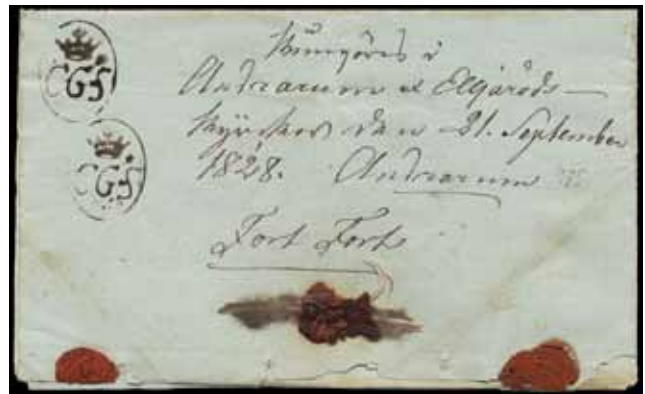 CGS
Kungöres i
Andrarum & Elljaröds
CGS
Kyrkor den 21. September
1828. Andrarum
Fort Fort